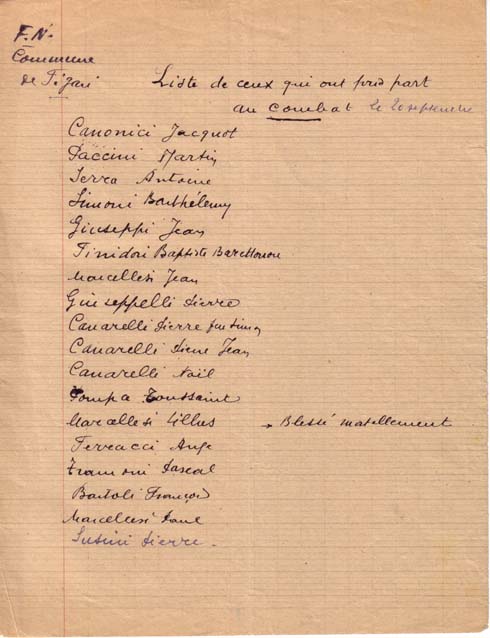 F.N.
Commune
de Figari
Liste de ceux qui ont pris part
au combat le 20 septembre
Canonici Jacquot
Paccini Martin
Serra Antoine
Simoni Barthélemy
Giuseppi Jean
Finidori Baptiste
Marcellesi Jean
Giuseppelli Pierre
Canarelli Pierre
Canarelli Pierre Jean
Canarelli Noël
Pompa Toussaint
Marcellesi → Blessé mortellement
Ferracci Ange
Tramoni Pascal
Bartoli François
Marcellesi Paul
Susini Pierre